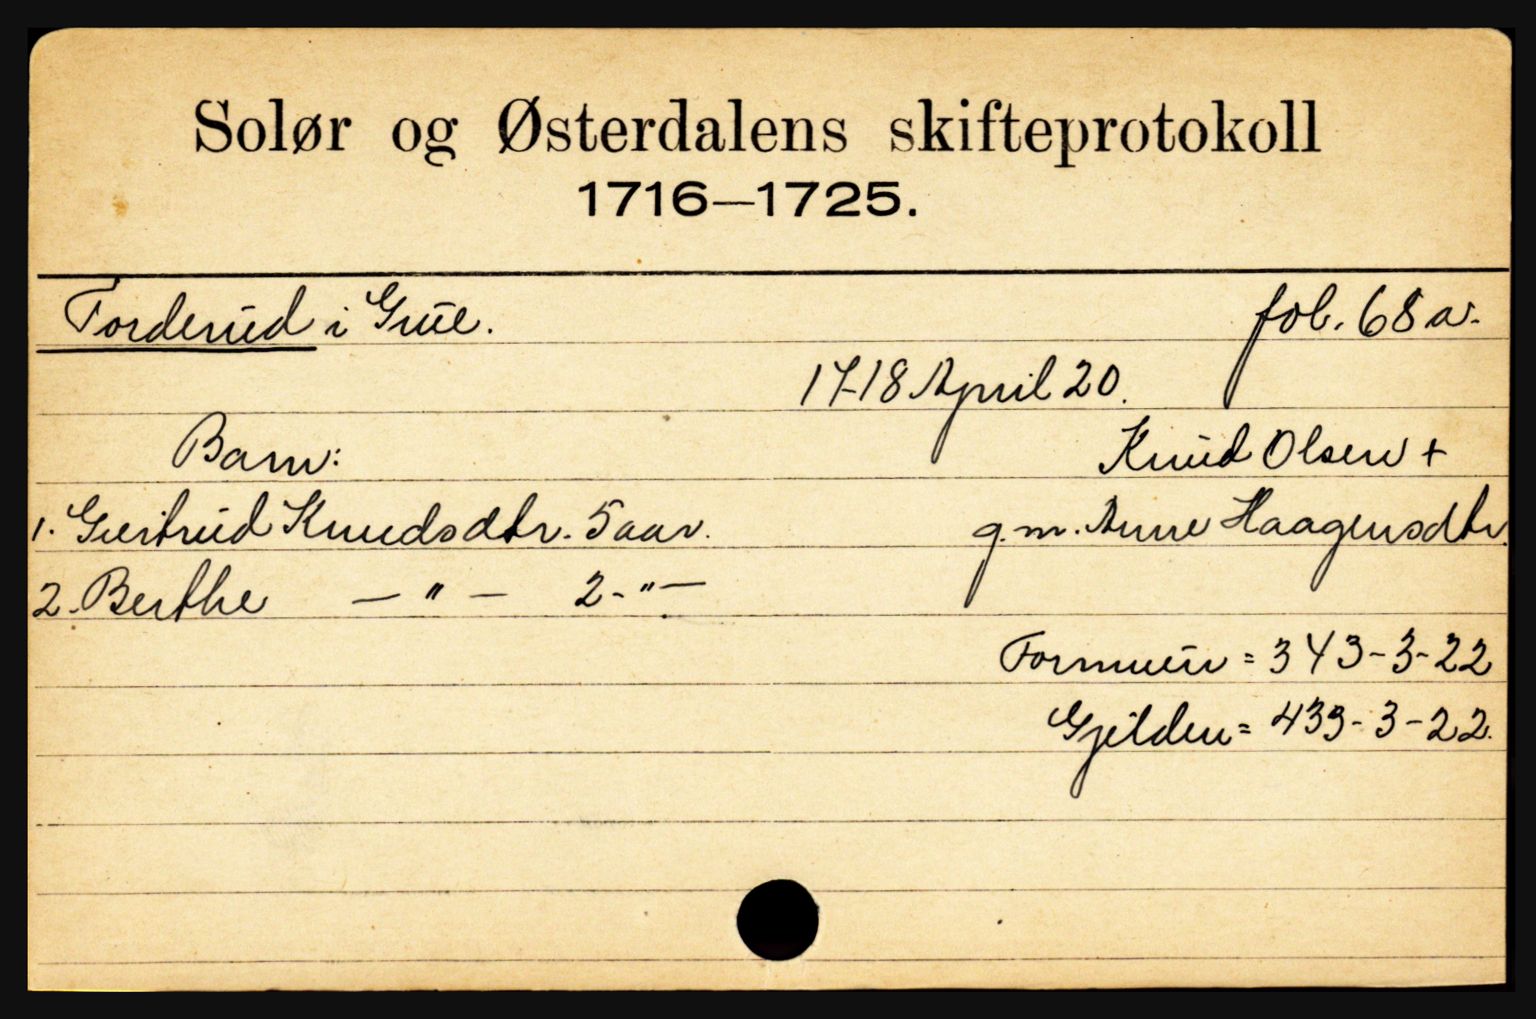 Solør og Østerdalens skifteprotokoll
1716—1725.
Torderud i Grue. fol. 68 a.
17-18 April 20.
Barn: Knud Olsen +
1. Giertrud Knudsdtr. 5 aar. g.m. Anne Haagensdtr.
2. Berthe — " — 2 - " —
Formuen = 343-3-22
Gjelden = 433-3-22.